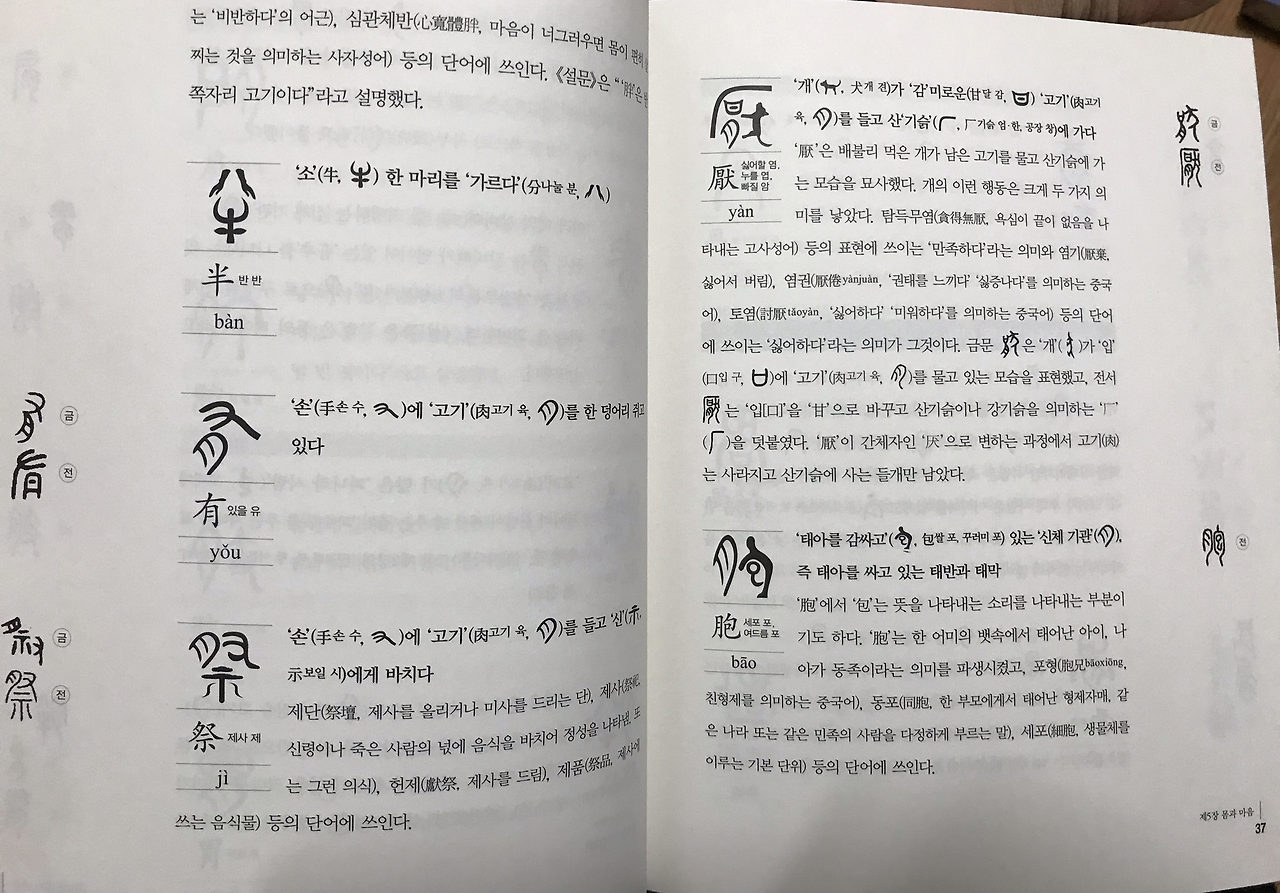 는 '비반하다'의 어근), 심관체반(心寬體胖, 마음이 너그러우면 몸이 편히
찌는 것을 의미하는 사자성어) 등의 단어에 쓰인다. 《설문》은 “ '胖'은
쪽자리 고기이다”라고 설명했다.
'소'(牛, ) 한 마리를 '가르다'(分나눌 분, )
半 반 반
bàn
'손'(手손 수, )에 '고기'(肉고기 육, )를 한 덩어리 쥐고
있다
금
전
有 있을 유
yǒu
'손'(手손 수, )에 '고기'(肉고기 육, )를 들고 '신'(示,
示보일 시)에게 바치다
금
전
祭 제사 제
jì
제단(祭壇, 제사를 올리거나 미사를 드리는 단), 제사(祭祀,
신령이나 죽은 사람의 넋에 음식을 바치어 정성을 나타냄. 또
는 그런 의식), 헌제(獻祭, 제사를 드림), 제품(祭品, 제사에
쓰는 음식물) 등의 단어에 쓰인다.
'개'( , 犬개 견)가 '감'미로운(甘달 감, ) '고기'(肉고기
육, )를 들고 산'기슭'( , 厂기슭 엄·한, 공장 창)에 가다
금
전
厭 싫어할 염,
누를 엽,
빠질 암
yàn
'厭'은 배불리 먹은 개가 남은 고기를 물고 산기슭에 가
는 모습을 묘사했다. 개의 이런 행동은 크게 두 가지 의
미를 낳았다. 탐득무염(貪得無厭, 욕심이 끝이 없음을 나
타내는 고사성어) 등의 표현에 쓰이는 '만족하다'라는 의미와 염기(厭棄,
싫어서 버림), 염권(厭倦yànjuàn, '권태를 느끼다' '싫증나다'를 의미하는 중국
어), 토염(討厭tǎoyàn, '싫어하다' '미워하다'를 의미하는 중국어) 등의 단어
에 쓰이는 '싫어하다'라는 의미가 그것이다. 금문 은 '개'( )가 '입'
(口입 구, )에 '고기'(肉고기 육, )를 물고 있는 모습을 표현했고, 전서
는 '입[口]'을 '甘'으로 바꾸고 산기슭이나 강기슭을 의미하는 '厂'
( )을 덧붙였다. '厭'이 간체자인 '厌'으로 변하는 과정에서 고기(肉)
는 사라지고 산기슭에 사는 들개만 남았다.
'태아를 감싸고'( , 包쌀 포, 꾸러미 포) 있는 '신체 기관'( ),
즉 태아를 싸고 있는 태반과 태막
전
胞 세포 포,
여드름 포
bāo
'胞'에서 '包'는 뜻을 나타내는 소리를 나타내는 부분이
기도 하다. '胞'는 한 어미의 뱃속에서 태어난 아이, 나
아가 동족이라는 의미를 파생시켰고, 포형(胞兄bāoxiōng,
친형제를 의미하는 중국어), 동포(同胞, 한 부모에게서 태어난 형제자매, 같
은 나라 또는 같은 민족의 사람을 다정하게 부르는 말), 세포(細胞, 생물체를
이루는 기본 단위) 등의 단어에 쓰인다.
제5장 몸과 마음
37